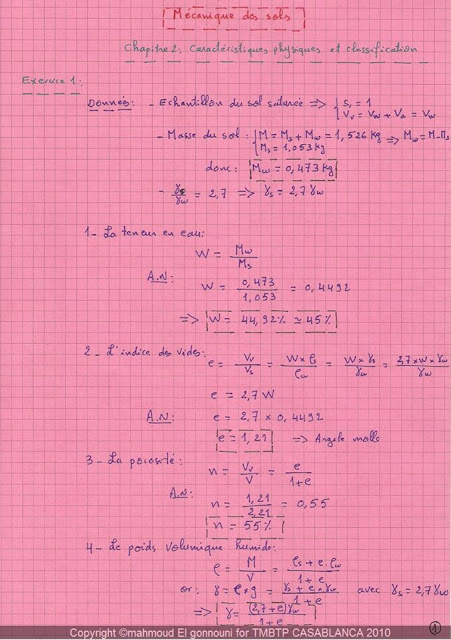 Mécanique des sols
Chapitre 2: Caractéristiques physiques et classification
Exercice 1:
Données: - Echantillon du sol saturée => { Sr = 1
Vv = Vw + Va = Vw
- Masse du sol: { M = Ms + Mw = 1,526 kg => Mw = M-Ms
Ms = 1.053 kg
donc: Mw = 0,473 kg
- γs/γw = 2,7 => γs = 2,7 γw
1 - La teneur en eau:
W = Mw/Ms
A.N: W = 0,473/1,053 = 0,4492
=> W = 44,92% ≃ 45%
2 - L'indice des vides: e = Vv/Vs = W x ρs/ρw = W x γs/γw = 2,7 x W x γw/γw
e = 2,7 W
A.N: e = 2.7 x 0,4492
e = 1,21 => Argile molle
3 - La porosité: n = Vv/V = e/1+e
A.N: n = 1,21/2,21 = 0,55
n = 55%
4 - Le poids volumique humide:
ρ = M/V = ρs + e.ρw/1+e
or: γ = ρ x g = γs + e.γw/1+e avec γs = 2,7γw
=> γ = (2,7+e)γw/1+e
1
Copyright ©mahmoud El gonnouni for TMBTP CASABLANCA 2010